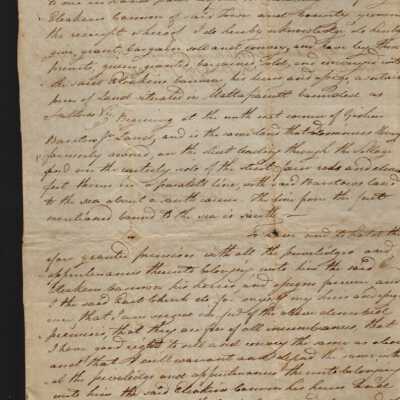 Eleakim Cannon of said Town and County yeoman
the receipt whereof I do hereby acknowledge, do hereby
give, grant, bargain sell and convey, and have by these
presents, given, granted, bargained, sold, and conveyed unto
the said Eleakim Cannon his heirs and assigns a certain
piece of Land situated in Mattapoisett bounded as
follows Viz. Beginning at the north east corner of Gideon
Barstow's Land, and is the same land that
formerly owned, on the street leading through the village
and on the easterly side of the street four rods and eleven
feet thence in a parallel line with said Barstows Land
to the sea about a south course. The line from the first
mentioned bound to the sea is south
To have and to hold the
afore granted premises with all the priviledges and
appurtenances thereto belonging unto him the said
Eleakim Cannon his heirs and assigns forever and
I the said do for myself my heirs and assigns
that I am seized in fee of the above described
premises, that they are free of all incumbrances, that
I have good right to sell and convey the same as above
and that I will warrant and defend the same with
all the priviledges and appurtenances thereunto belonging
unto him the said Eleakim Cannon his heirs